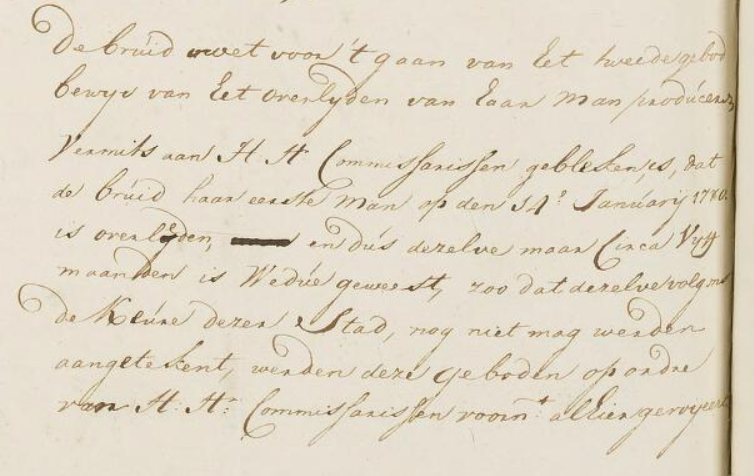 De bruid moet voor 't gaan van het tweede gebod
bewys van het overlyden van haar man produceren
Vermits aan H: Hn Commissarissen gebleken is, dat
de bruid haar eerste man op den 14e January 1780.
is overleden, en dus dezelve maar Circa Vyff
maanden is Wedúe geweest, zoo dat dezelve volgens
de Keúre dezer Stad, nog niet mag werden
aangetekent, werden deze geboden op ordre
van H: Hn: Commissarissen voorn.t alhier geroyeert